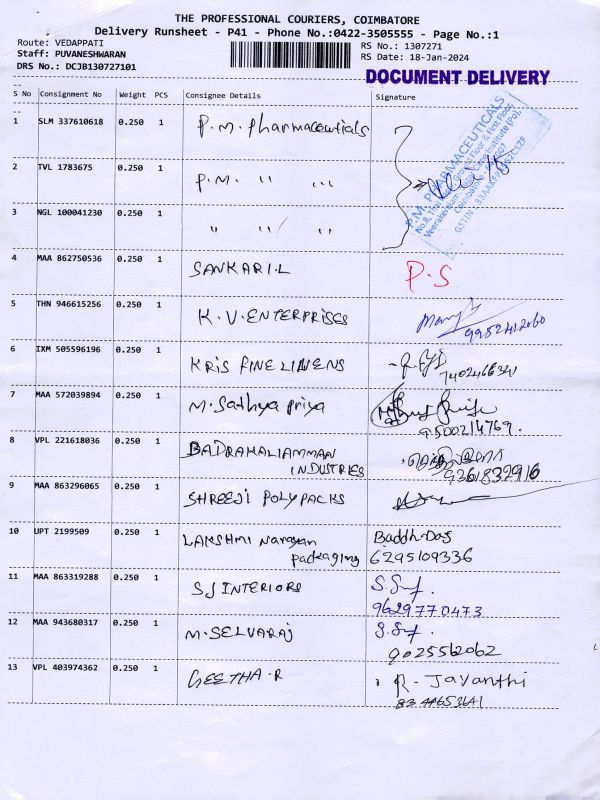 THE PROFESSIONAL COURIERS, COIMBATORE
Delivery Runsheet - P41 - Phone No.:0422-3505555 - Page No.:1
Route: VEDAPPATI
Staff: PUVANESHWARAN
DRS No.: DCJB130727101
RS No.: 1307271
RS Date: 18-Jan-2024
DOCUMENT DELIVERY
S No Consignment No Weight PCS Consignee Details Signature
1 SLM 337610618 0.250 1 P.M. Pharmaceuticals
P.M. PHARMACEUTICALS
2 TVL 1783675 0.250 1 P.M. " "
3 NGL 100041230 0.250 1 " " "
4 MAA 862750536 0.250 1 SANKARI.L P.S
5 THN 946615256 0.250 1 K.V.ENTERPRISES
9952412060
6 IXM 505596196 0.250 1 KRIS FINE LINENS
7 MAA 572039894 0.250 1 M.Sathya priya
9500214769.
8 VPL 221618036 0.250 1 BADRAKALIAMMAN
INDUSTRIES 9361832916
9 MAA 863296065 0.250 1 SHREEJI POLYPACKS
10 UPT 2199509 0.250 1 LAKSHMI Narayan Baddh Das
packaging 6295109336
11 MAA 863319288 0.250 1 SJ INTERIORS
9629770473
12 MAA 943680317 0.250 1 M.SELVARAJ
9025562062
13 VPL 403974362 0.250 1 GEETHA.R R. Jayanthi